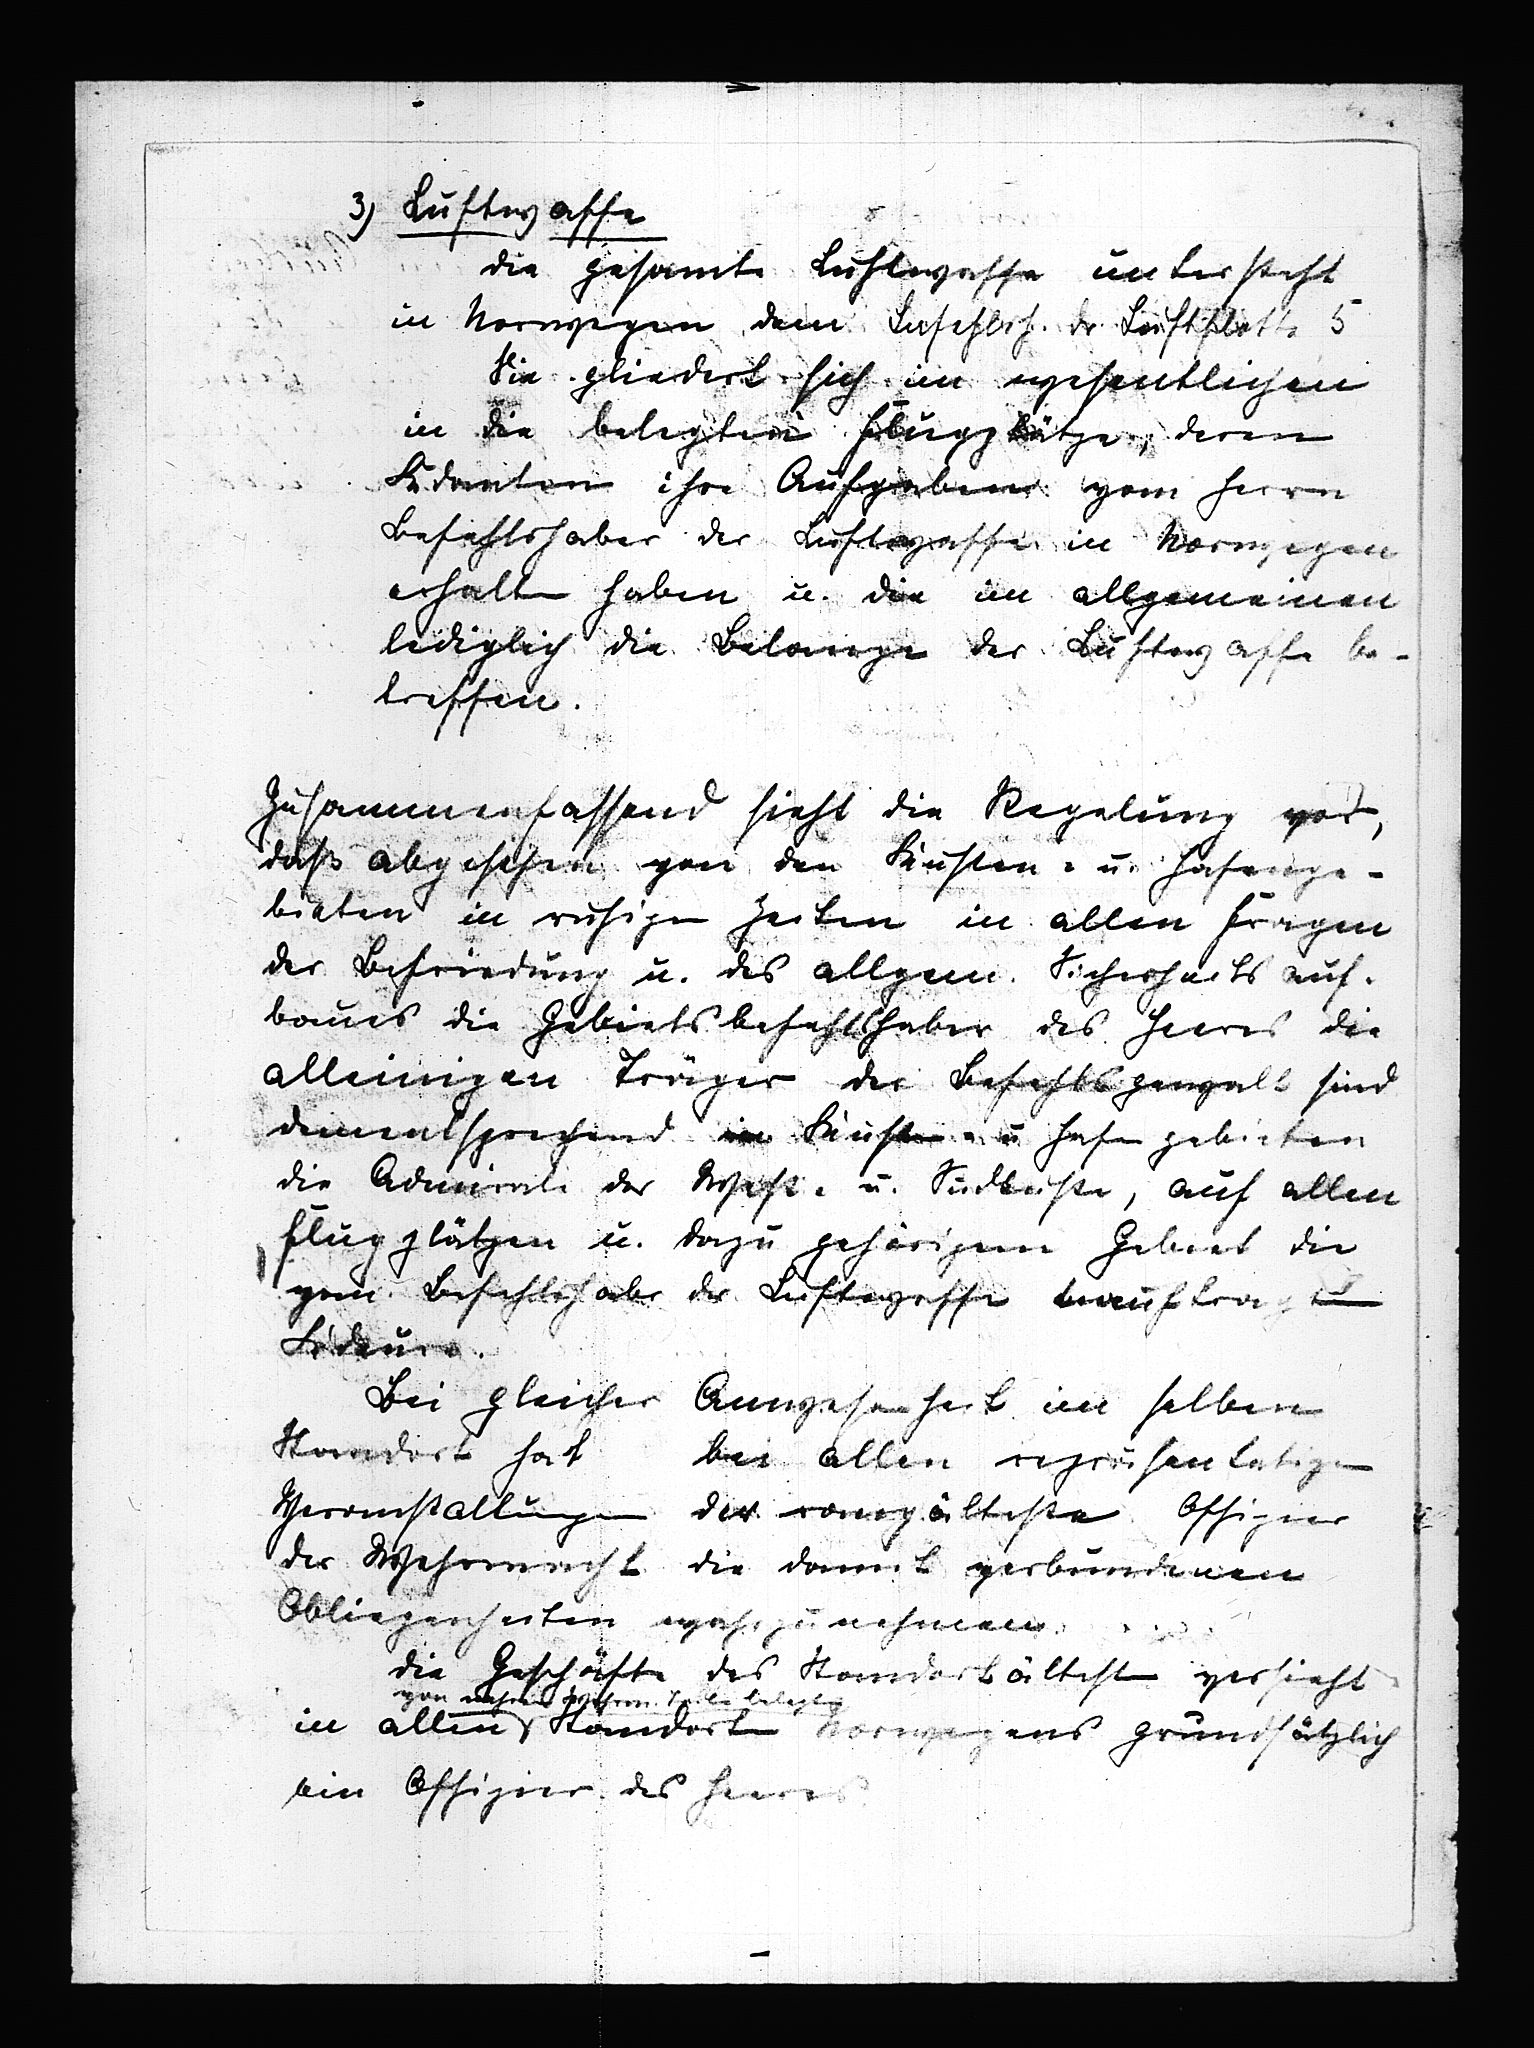 3) Luftwaffe
die gesamte Luftwaffe untersteht
in Norwegen dem Befehlsh. der Luftflotte 5
Sie gliedert sich im wesentlichen
in die belegten Flugplätze, deren
Kdanten ihre Aufgaben vom Herrn
Befehlshaber der Luftwaffe in Norwegen
erhalten haben u. die im allgemeinen
lediglich die Belange der Luftwaffe be-
treffen.
Zusammenfassend sieht die Regelung vor,
daß abgesehen von den Küsten- u. Hafenge-
bieten in ruhigen Zeiten in allen Fragen
der Befriedung u. des allgem. Sicherheitsauf-
baues die Gebietsbefehlshaber des Heeres die
alleinigen Träger der Befehlsgewalt sind
dementsprechend in Küsten- u Hafengebieten
die Admirale der West- u. Südküste, auf allen
Flugplätzen u. dazu gehörigem Gebiet die
vom Befehlshaber der Luftwaffe beauftragten
Kdeure.
Bei gleicher Anwesenheit im selben
Standort hat bei allen repräsentativen
Veranstaltungen der rangälteste Offizier
der Wehrmacht die damit verbundenen
Obliegenheiten wahrzunehmen.
die Geschäfte des Standortältesten versieht
von mehr. Wehrm. Teilen belegten
in allen Standorten Norwegens grundsätzlich
ein Offizier des Heeres